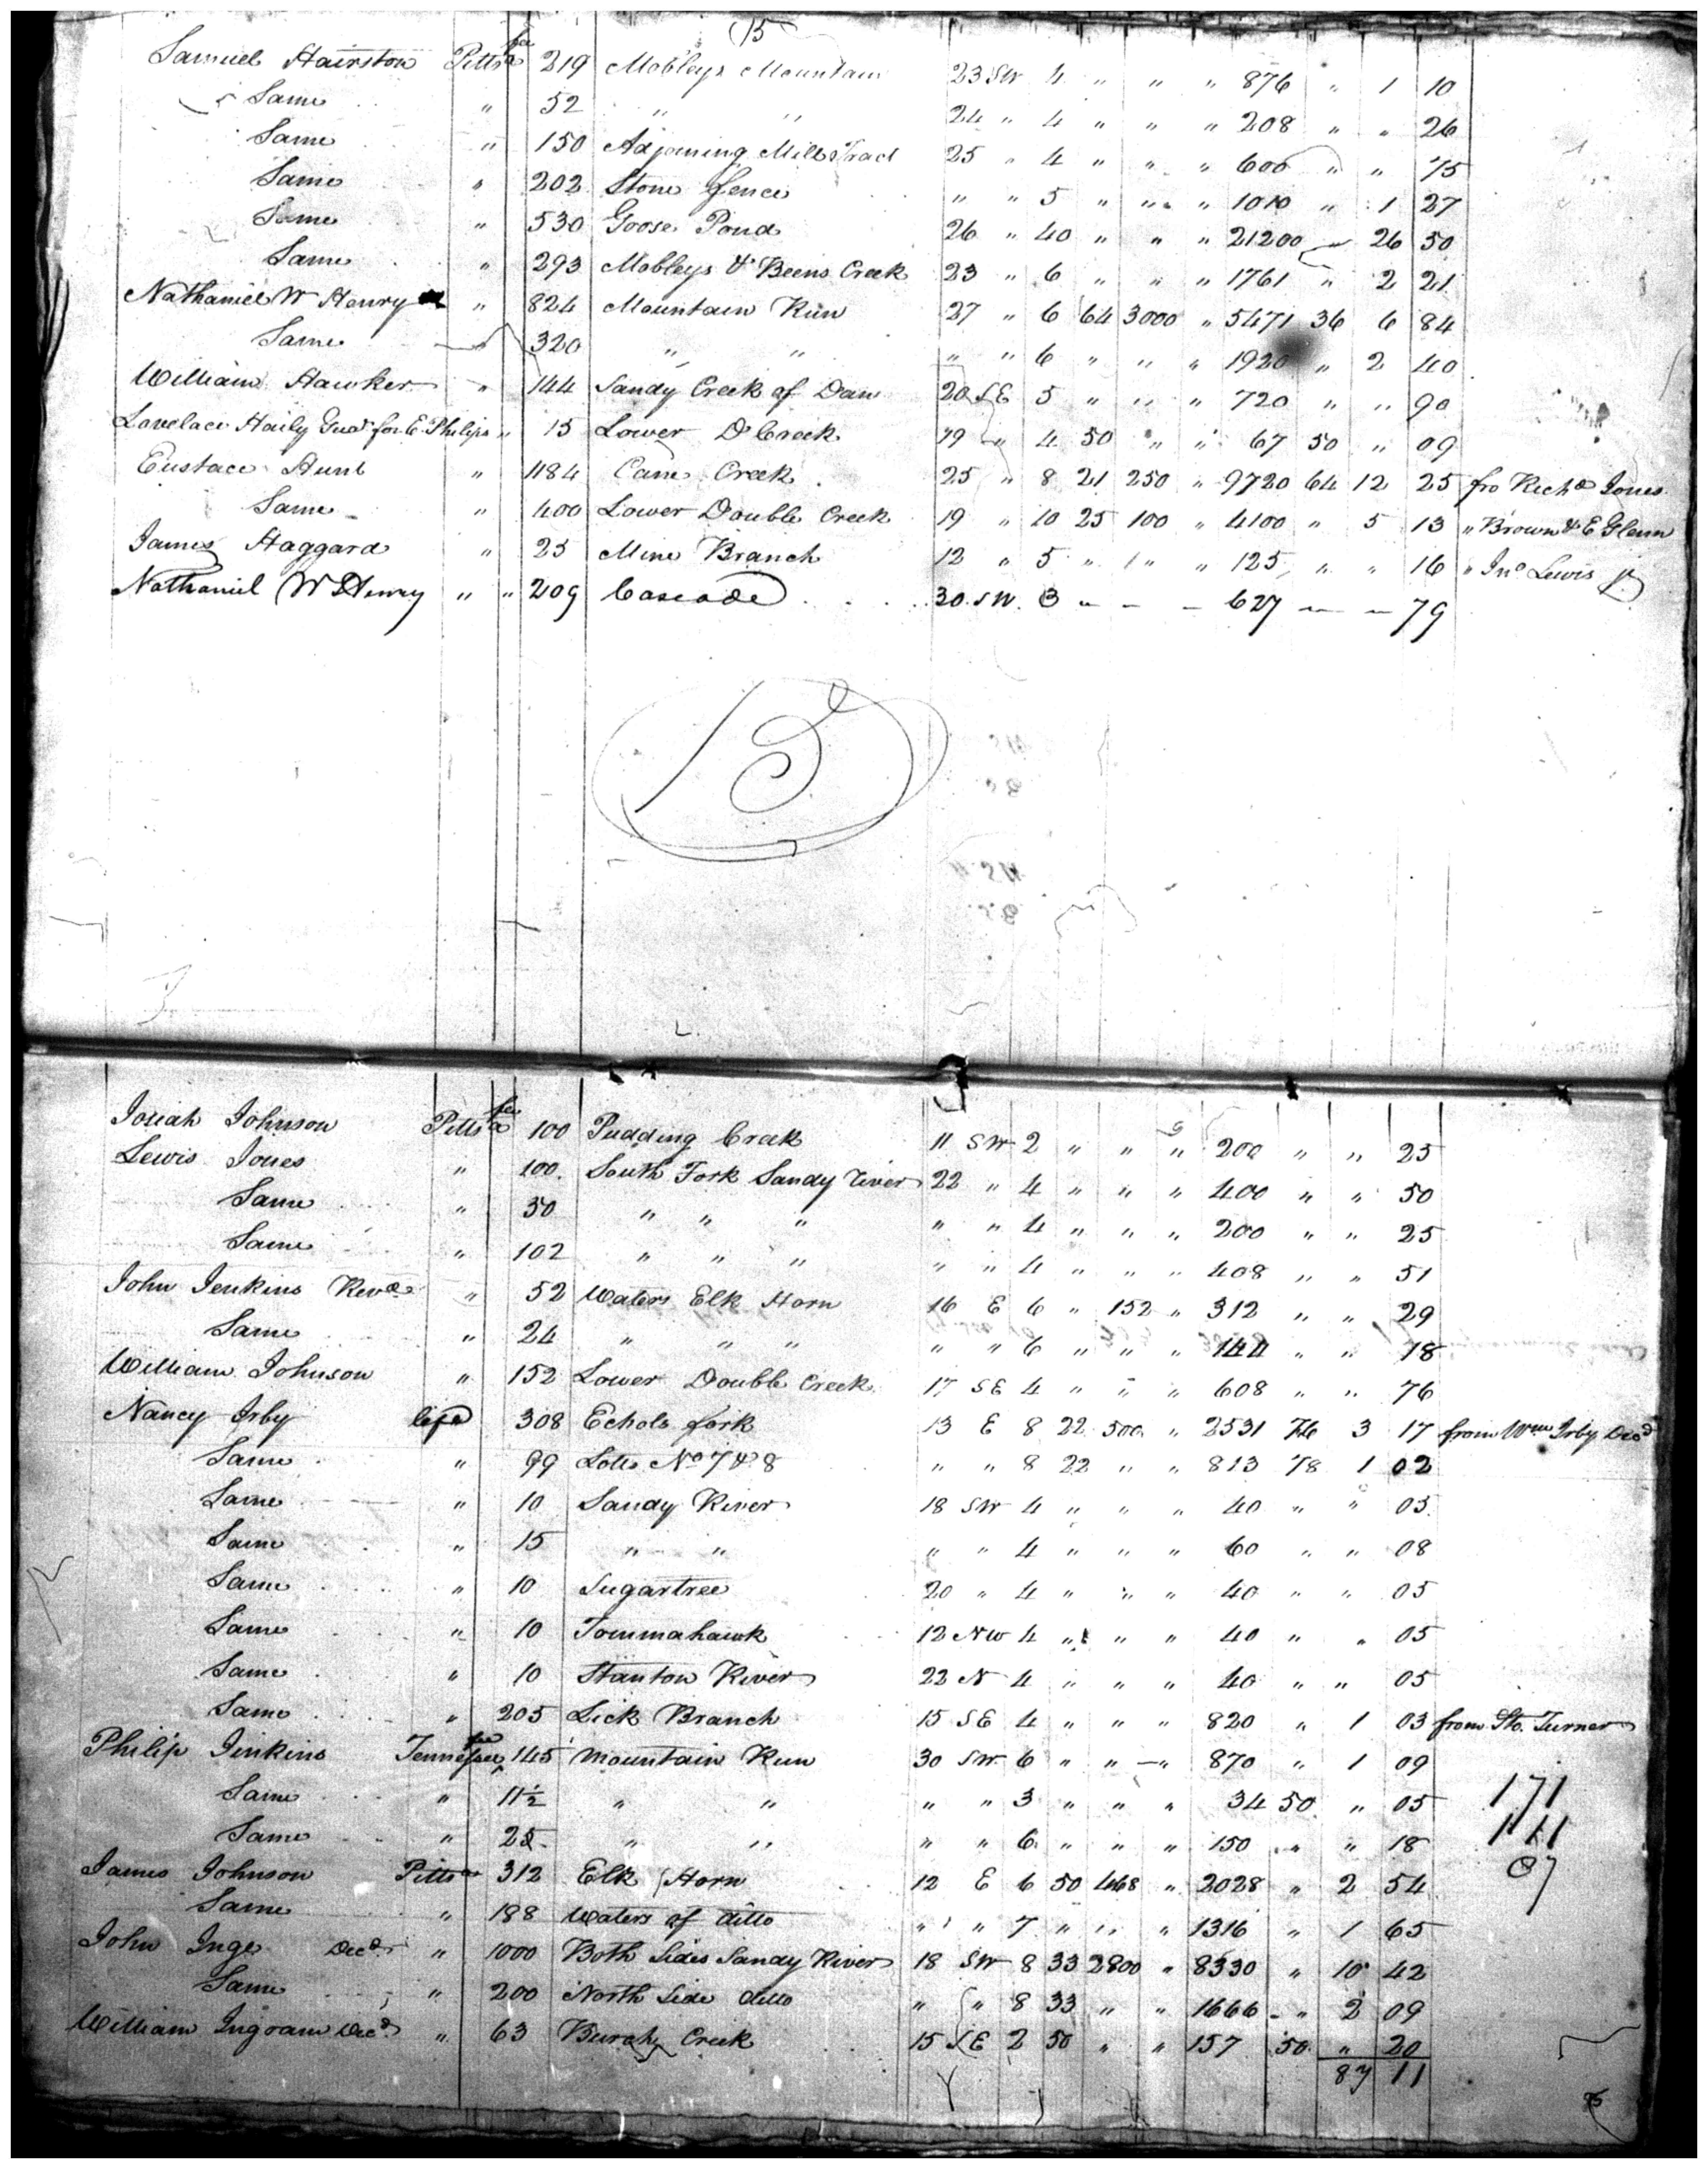 (15
Samuel Hairston Pittsa fee 219 Mobleys Mountain 23 SW 4 " " " 876 " 1 10
Same " 52 " " 24 " 4 " " " 208 " " 26
Same " 150 Adjoining Mill Tract 25 " 4 " " " 600 " " 75
Same " 202 Stone fence " " 5 " " " 1010 " 1 27
Same " 530 Goose Pond 26 " 40 " " " 21200 " 26 50
Same " 293 Mobleys & Beens Creek 23 " 6 " " " 1761 " 2 21
Nathaniel W Henry " 824 Mountain Run 27 " 6 64 3000 " 5471 36 6 84
Same " 320 " " " " 6 " " " 1920 " 2 40
William Hawker " 144 Sandy Creek of Dan 20 SE 5 " " " 720 " " 90
Lavelace Haily Guad for E Philips " 15 Lower D Creek 19 " 4 50 " " 67 50 " 09
Eustace Hunt " 1184 Cane Creek 25 " 8 21 250 " 9720 64 12 25 fro Richd Jones
Same " 400 Lower Double Creek 19 " 10 25 100 " 4100 " 5 13 " Brown & E Glenn
James Haggard " 25 Mine Branch 12 " 5 " " " 125 " " 16 " Jno Lewis
Nathaniel W Henry " " 209 Cascade 30 SW 3 " - - 627 - - 79
15
Josiah Johnson Pittsa fee 100 Pudding Creek 11 SW 2 " " " 200 " " 25
Lewis Jones " 100 South Fork Sandy River 22 " 4 " " " 400 " " 50
Same " 50 " " " " " 4 " " " 200 " " 25
Same " 102 " " " " " 4 " " " 408 " " 51
John Jenkins Revd " 52 Waters Elk Horn 16 E 6 " 152 " 312 " " 29
Same " 24 " " " " " 6 " " " 144 " " 18
William Johnson " 152 Lower Double Creek 17 SE 4 " " " 608 " " 76
Nancy Irby life 308 Echols fork 13 E 8 22 500 " 2531 76 3 17 from Wm Irby Decd
Same " 99 Lots No 7 & 8 " " 8 22 " " 813 78 1 02
Same " 10 Sandy River 18 SW 4 " " " 40 " " 05
Same " 15 " " " " 4 " " " 60 " " 08
Same " 10 Sugartree 20 " 4 " " " 40 " " 05
Same " 10 Tommahawk 12 NW 4 " " " 40 " " 05
Same " 10 Stanton River 22 N 4 " " " 40 " " 05
Same " 205 Lick Branch 15 SE 4 " " " 820 " 1 03 from Sto. Turner
Philip Jinkins Tennessee fee 145 Mountain Run 30 SW 6 " " " 870 " 1 09
Same " 11½ " " " " 3 " " " 34 50 " 05
171
Same " 25 " " " " 6 " " " 150 " " 18
111
James Johnson Pittsa 312 Elk Horn 12 E 6 50 468 " 2028 " 2 54
87
Same " 188 Waters of ditto " " 7 " " " 1316 " 1 65
John Inge Decd " 1000 Both Sides Sandy River 18 SW 8 33 2800 " 8330 " 10 42
Same " 200 North Side ditto " " 8 33 " " 1666 " 2 09
William Ingram Decd " 63 Burch Creek 15 SE 2 50 " " 157 50 " 20
87 11